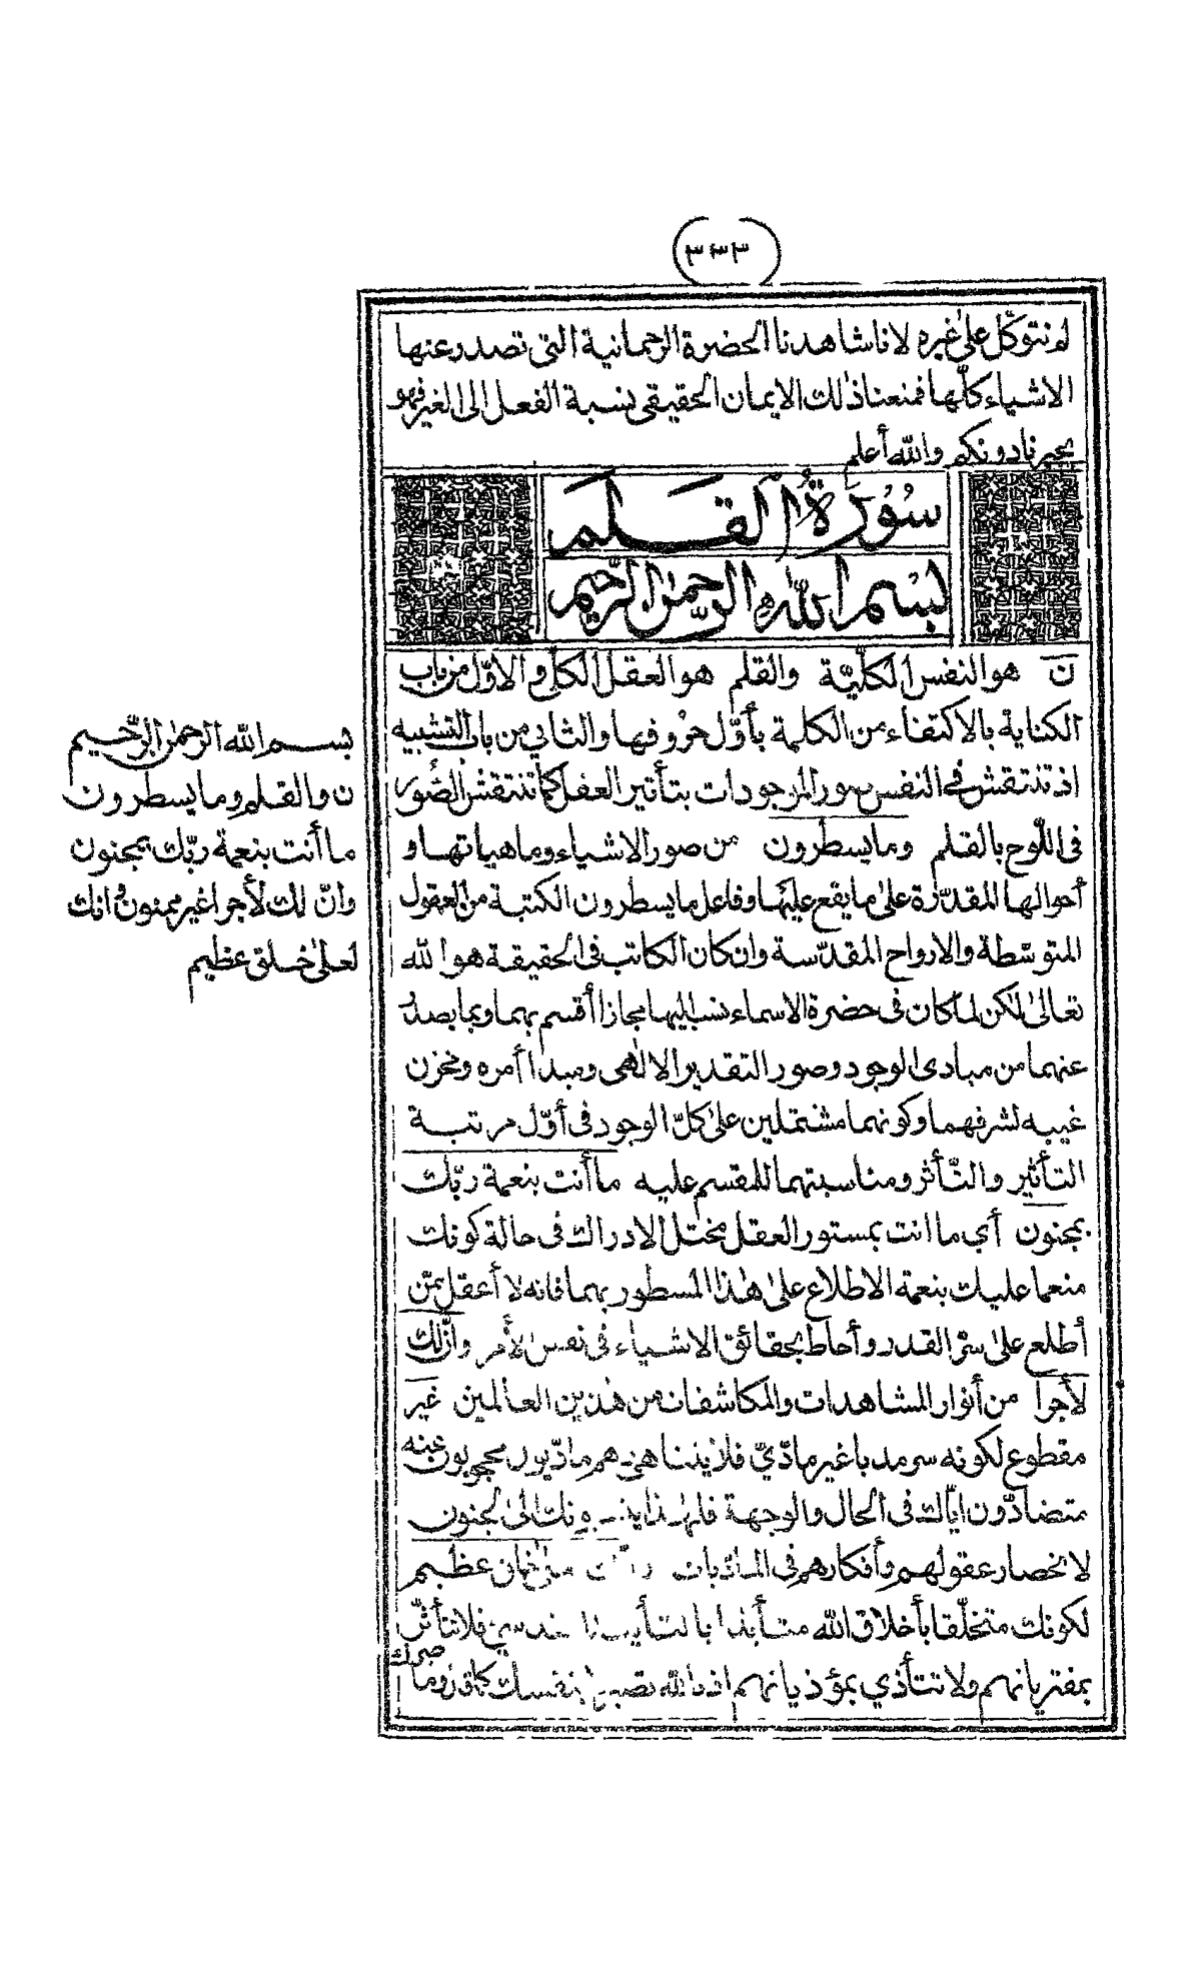 ٣٣٣
لم نتوكّل على غيره لاناشاهدنا الحضرة الرحمانية التى تصدر عنها
الاشياء كلّها فمنعنا ذلك الايمان الحقيقى نسبة الفعل الى الغير فهو
يجيرنا دونكم والله أعلم
سُوُرَةُ القَلَم
بسم الله الرحمن الرحيم
ن هو النفس الكلّيّة والقلم هو العقل الكلّى والاوّل من باب
الكناية بالاكتفاء من الكلمة بأوّل حروفها والثاني من باب التشبيه
اذ تنتقش فى النفس صور الموجودات بتأثير العقل كما تنتقش الصُوَر
فى اللّوح بالقلم وما يسطرون من صور الاشياء وماهياتها و
أحوالها المقدّرة على ما يقع عليها وفاعل ما يسطرون الكتبة من العقول
المتوسّطة والارواح المقدّسة وان كان الكاتب فى الحقيقة هو الله
تعالى لكن لما كان فى حضرة الاسماء نسب اليها مجازا أقسم بهما وبما يصدر
عنهما من مبادى الوجود وصور التقدير الالٰهى ومبدأ أمره ومخزن
غيبه لشرفهما وكونهما مشتملين على كلّ الوجود فى أوّل مرتبة
التأثير والتّأثر ومناسبتهما للمقسم عليه ما أنت بنعمة ربّك
بمجنون أي ما انت بمستور العقل مختل الادراك فى حالة كونك
منعما عليك بنعمة الاطلاع على هٰذا المسطور بهما فانه لا أعقل ممّن
أطلع على سرّ القدر وأحاط بحقائق الاشياء فى نفس الأمر وانّ لك
لأجرا من أنوار المشاهدات والمكاشفات من هٰذين العالمين غير
مقطوع لكونه سرمديا غير مادّيّ فلا يتناهى هم مادّيون محجوبون عنه
متضادّون ايّاك فى الحال والوجهة فلهذا ينسبونك الى الجنون
لانحصار عقولهم وأفكارهم فى الماديات خلق عظيم
لكونك متخلّقا بأخلاق الله فلا تتأثّر
بمفترياتهم ولا تتأذي بمؤذياتهم اذ بالله تصبر لا بنفسك كما قال وما
صبرك
بسم الله الرحمٰن الرّحيم
ن والقلم وما يسطرون
ما أنت بنعمة ربّك بمجنون
وانّ لك لأجرا غير ممنون وانك
لعلى خلق عظيم